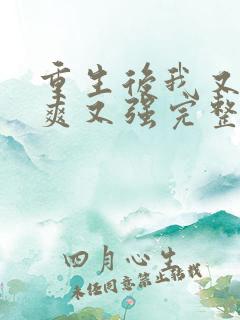 重生后我又
爽又强完整
四月心生
未经同意禁止转载